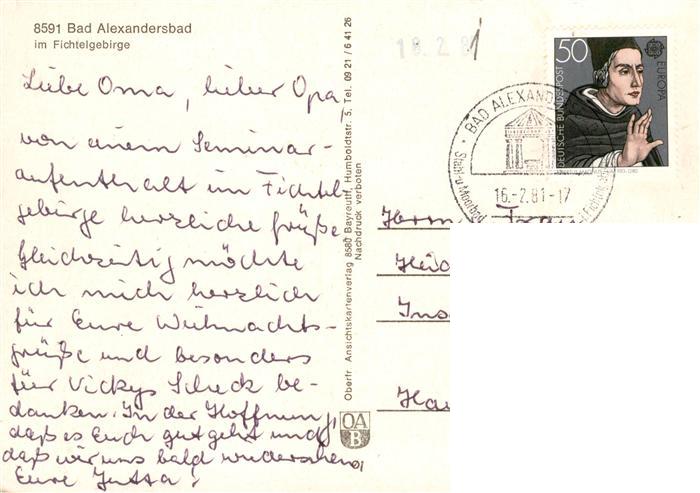 8591 Bad Alexandersbad
im Fichtelgebirge
Liebe Oma, lieber Opa,
von einem Seminar-
aufenthalt im Fichtel
gebirge herzliche Grüße
Gleichzeitig möchte
ich mich herzlich
für Eure Weihnachts-
grüße und besonders
für Vickys Scheck be-
danken. In der Hoffnung,
daß es Euch gut geht und
daß wir uns bald wiedersehen
Eure Jutta!
Oberfr. Ansichtskartenverlag 8580 Bayreuth, Humboldtstr. 5, Tel. 09 21 / 6 41 26
Nachdruck verboten
OA
B
18. 2. 81
50
DEUTSCHE BUNDESPOST
EUROPA
BAD ALEXAND
16.-2.81-17
Herrn